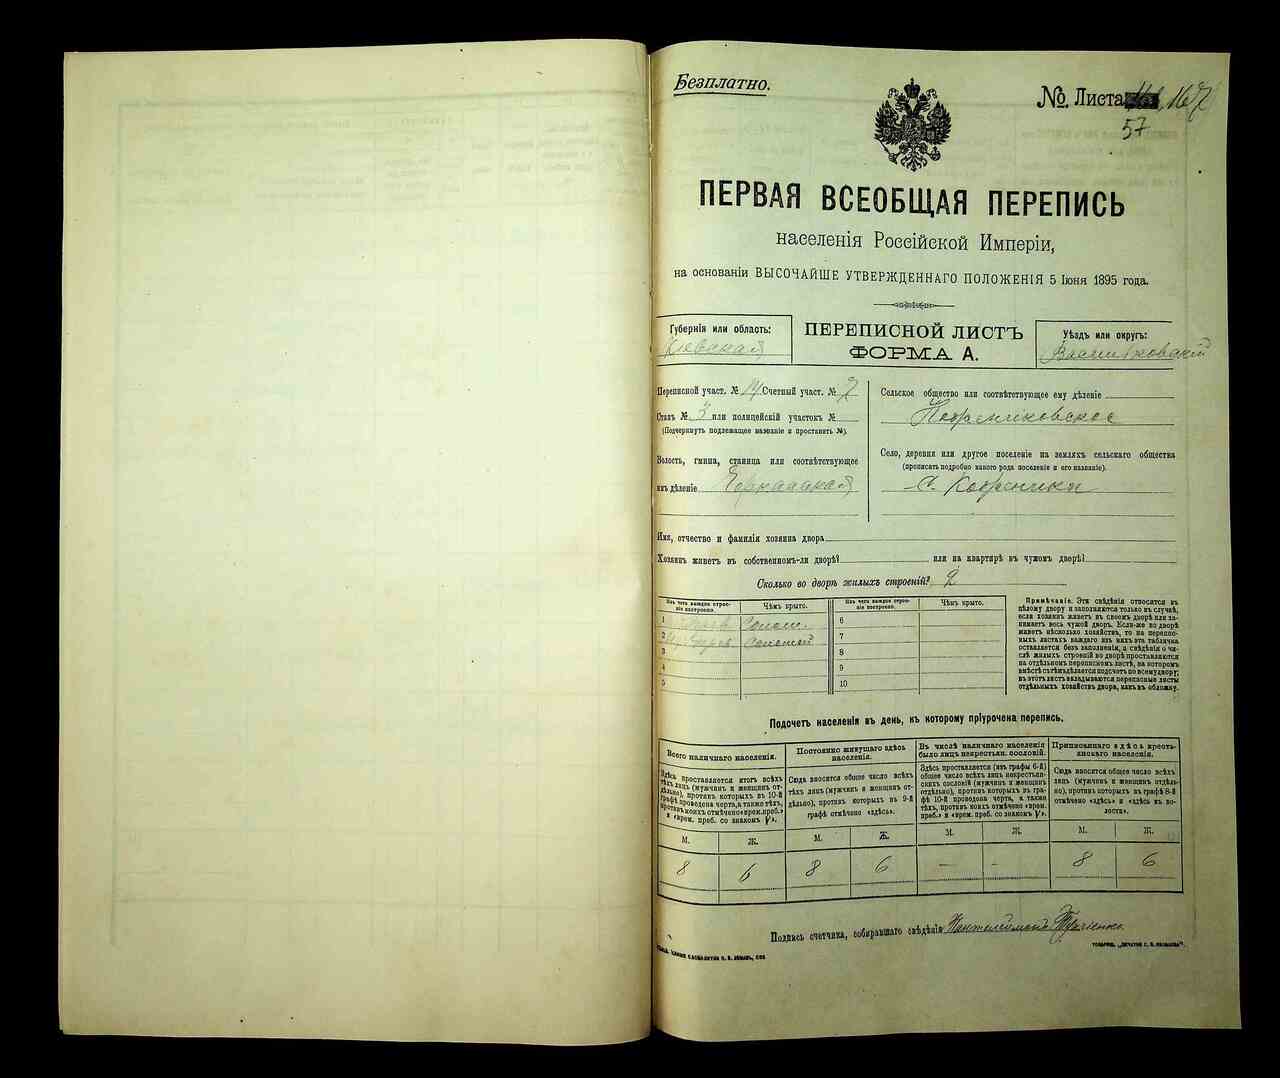 Безплатно.
№ Листа 167
57
ПЕРВАЯ ВСЕОБЩАЯ ПЕРЕПИСЬ
населенія Россійской Имперіи,
на основаніи ВЫСОЧАЙШЕ УТВЕРЖДЕННАГО ПОЛОЖЕНІЯ 5 Іюня 1895 года.
Губернія или область:
Кіевская
ПЕРЕПИСНОЙ ЛИСТЪ
ФОРМА А.
Уѣздъ или округъ:
Васильковскій
Переписной участ. № 14 Счетный участ. № 7
Станъ № 3 или полицейскій участокъ №
(Подчеркнуть подлежащее названіе и проставить №).
Волость, гмина, станица или соотвѣтствующее
имъ дѣленіе
Сельское общество или соотвѣтствующее ему дѣленіе
Село, деревня или другое поселеніе на земляхъ сельскаго общества
(прописать подробно какого рода поселеніе и его названіе).
с.
Имя, отчество и фамилія хозяина двора
Хозяинъ живетъ въ собственномъ-ли дворѣ? или на квартирѣ въ чужомъ дворѣ?
Сколько во дворѣ жилыхъ строеній? 2
Изъ чего каждое строеніе построено.
Чѣмъ крыто.
Изъ чего каждое строеніе построено.
Чѣмъ крыто.
1 Солом. 6
2 Соломой 7
3 8
4 9
5 10
Примѣчаніе. Эти свѣдѣнія относятся къ
цѣлому двору и заполняются только въ случаѣ,
если хозяинъ живетъ въ своемъ дворѣ или занимаетъ
весь чужой дворъ. Если-же во дворѣ
живетъ нѣсколько хозяйствъ, то на переписныхъ
листахъ каждаго изъ нихъ эта табличка
оставляется безъ заполненія, а свѣдѣнія о числѣ
жилыхъ строеній во дворѣ проставляются
на отдѣльномъ переписномъ листѣ, на которомъ
вмѣстѣ съ тѣмъ дѣлается подсчетъ по всему двору;
въ этотъ листъ вкладываются переписные листы
отдѣльныхъ хозяйствъ двора, какъ въ обложку.
Подсчетъ населенія въ день, къ которому пріурочена перепись.
Всего наличнаго населенія.
Здѣсь проставляется итогъ всѣхъ
тѣхъ лицъ (мужчинъ и женщинъ отдѣльно),
противъ которыхъ въ 10-й
графѣ проведена черта, а также тѣхъ,
противъ коихъ отмѣчено «врем. преб.»
и «врем. преб. со знакомъ V».
Постоянно живущаго здѣсь населенія.
Сюда вносится общее число всѣхъ
тѣхъ лицъ (мужчинъ и женщинъ отдѣльно),
противъ которыхъ въ 9-й
графѣ отмѣчено «здѣсь».
Въ числѣ наличнаго населенія
было лицъ некрестьян. сословій.
Здѣсь проставляется (изъ графы 6-й)
общее число всѣхъ лицъ некрестьянскихъ
сословій (мужчинъ и женщинъ
отдѣльно), противъ которыхъ въ графѣ
10-й проведена черта, а также
тѣхъ, противъ коихъ отмѣчено «врем.
преб.» и «врем. преб. со знакомъ V».
Приписаннаго здѣсь крестьянскаго населенія.
Сюда вносится общее число всѣхъ
лицъ (мужчинъ и женщинъ отдѣльно),
противъ которыхъ въ графѣ 8-й
отмѣчено «здѣсь» и «здѣсь въ волости».
М. Ж. М. Ж. М. Ж. М. Ж.
8 6 8 6 - - 8 6
Подпись счетчика, собиравшаго свѣдѣнія Пантелеймонъ Ткаченко